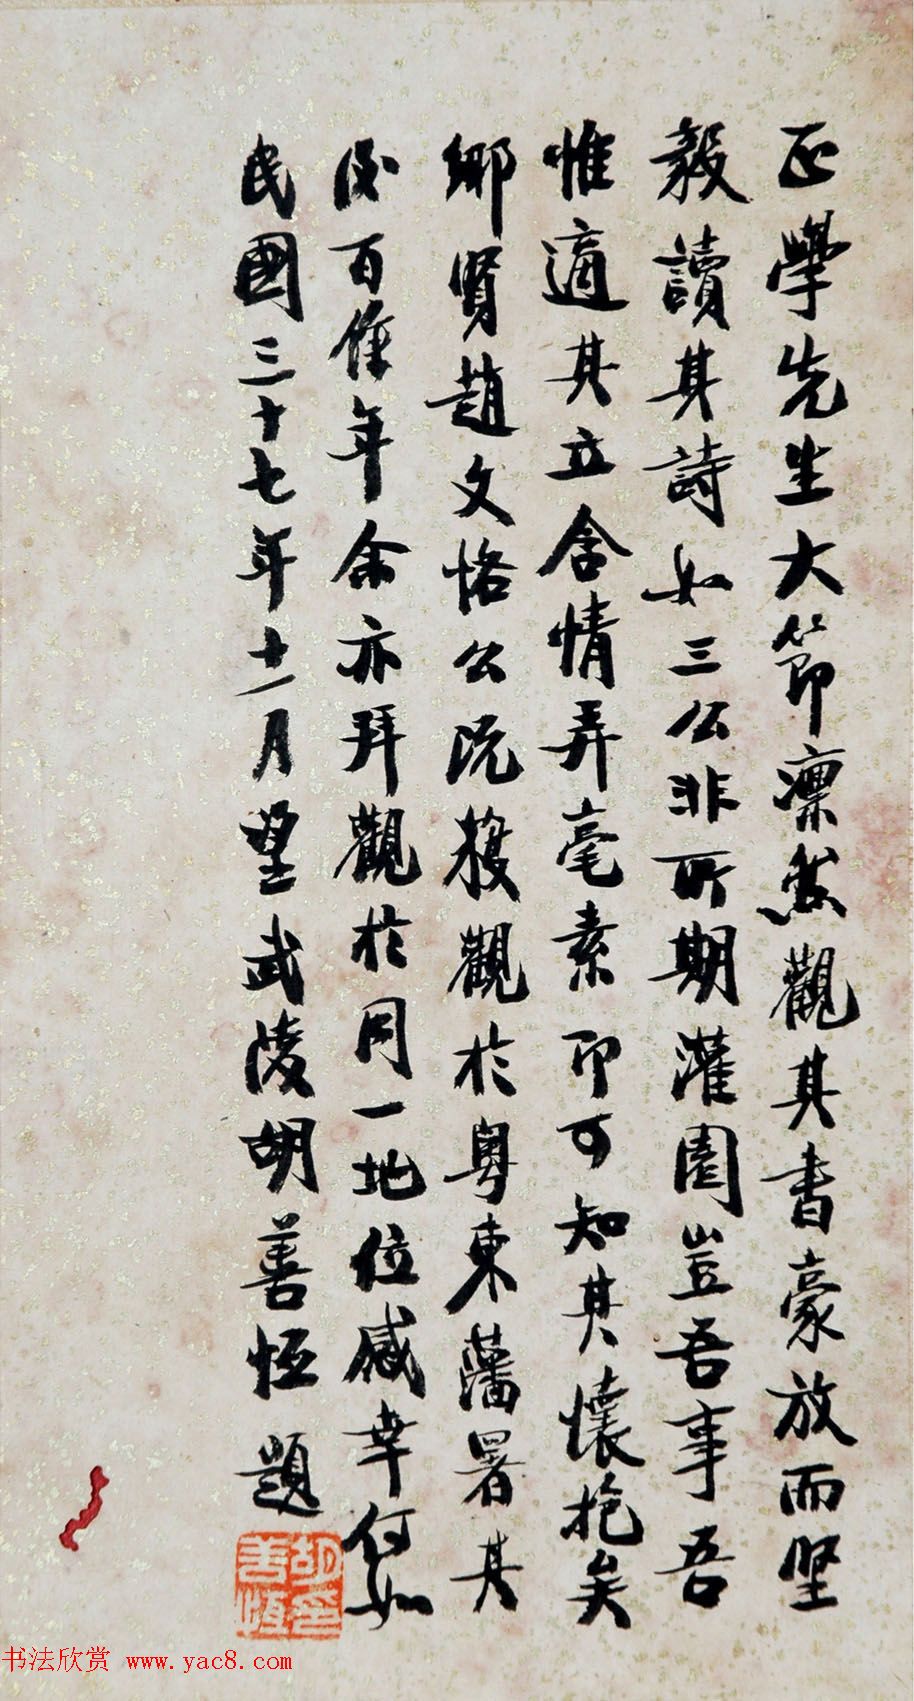 正學先生大節凛然觀其書豪放而坚
毅讀其詩如三公非所期灌園豈吾事吾
惟適其立含情弄毫素即可知其懷抱矣
鄉賢趙文恪公既授觀於粵東藩署其
後百餘年余亦拜觀於同一地位感幸何如
民國三十七年十一月望武陵胡善恒題
胡善恒印
书法欣赏 www.yac8.com